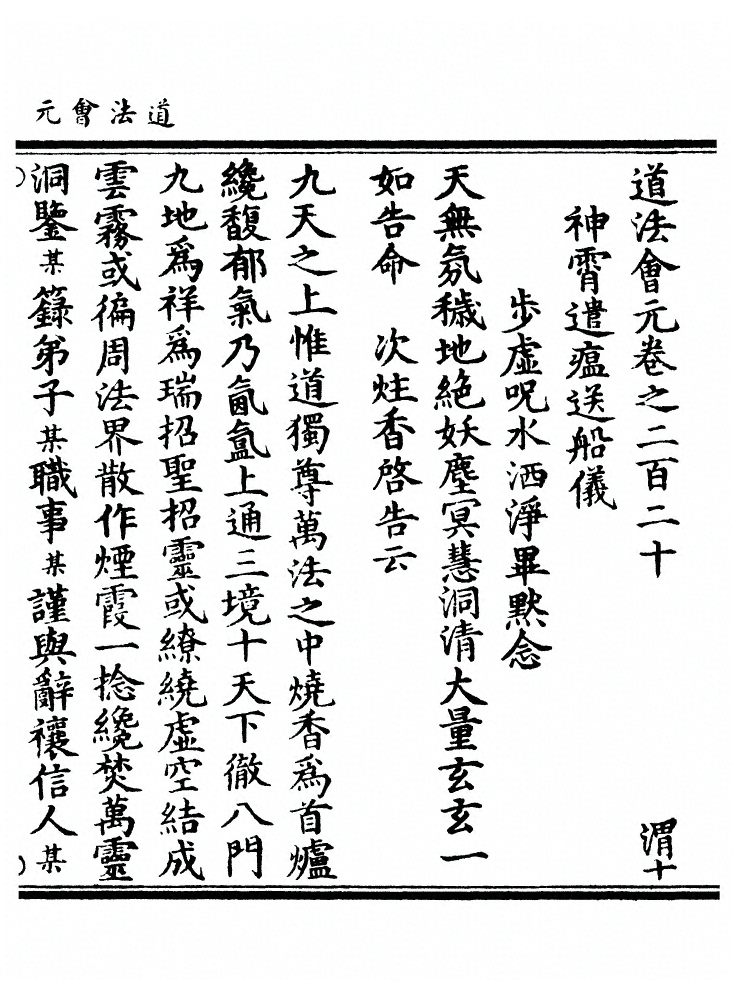 道法會元
道法會元卷之二百二十　渭十
神霄遣瘟送船儀
步虛呪水洒淨畢默念
天無氛穢地絶妖塵冥慧洞清大量玄玄一
如告命　次炷香啓告云
九天之上惟道獨尊萬法之中燒香爲首爐
纔馥郁氣乃氤氳上通三境十天下徹八門
九地爲祥爲瑞招聖招靈或繚繞虛空結成
雲霧或徧周法界散作煙霞一捻纔焚萬靈
洞鑒某籙弟子某職事某謹與辭禳信人某